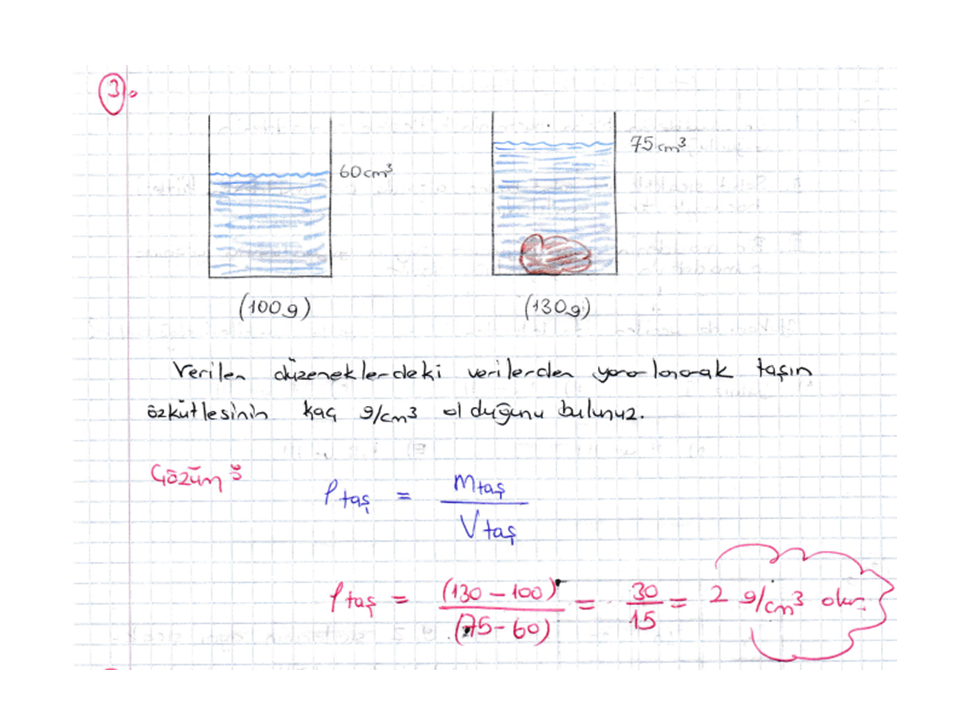 3.
60cm³
75cm³
(100g)
(130g)
Verilen düzeneklerdeki verilerden yararlanarak taşın
özkütlesinin kaç g/cm³ olduğunu bulunuz.
Çözüm :
ρtaş = mtaş / Vtaş
ρtaş = (130-100) / (75-60) = 30 / 15 = 2 g/cm³ olur.